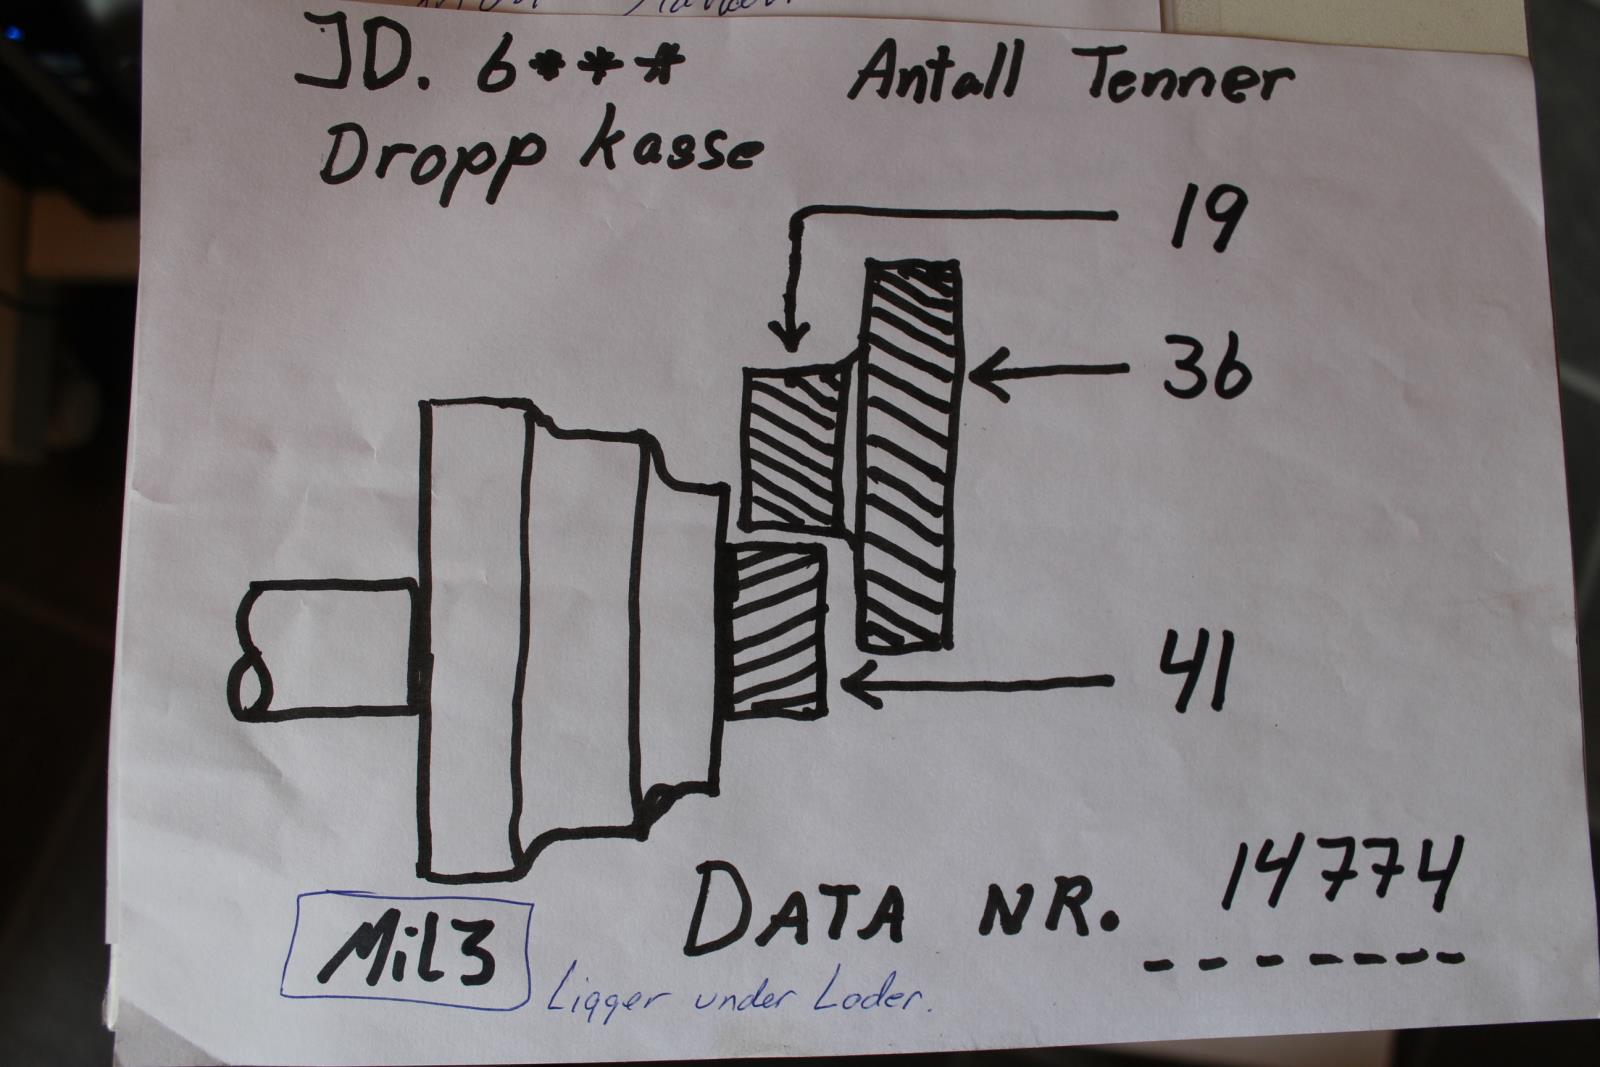 JD. 6***
Antall Tenner
Dropp kasse
19
36
41
14774
DATA NR.
Mil3
Ligger under Loder.